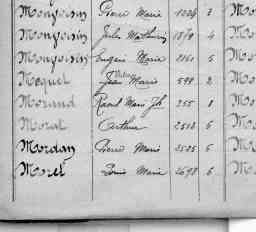 Mongoisin Pierre Marie 1024 2 Mo
Mongoisin Jules Mathurin 1819 4 Mo
Mongoisin Eugène Marie 2161 5 Mo
Moquet Jean Marie 598 2 Mo
Morand Raoul Marie Jh 255 1 Mo
Morat Arthur 2513 5 Mo
Mordan Pierre Marie 2525 5 Mo
Morel Louis Marie 2698 5 Mo